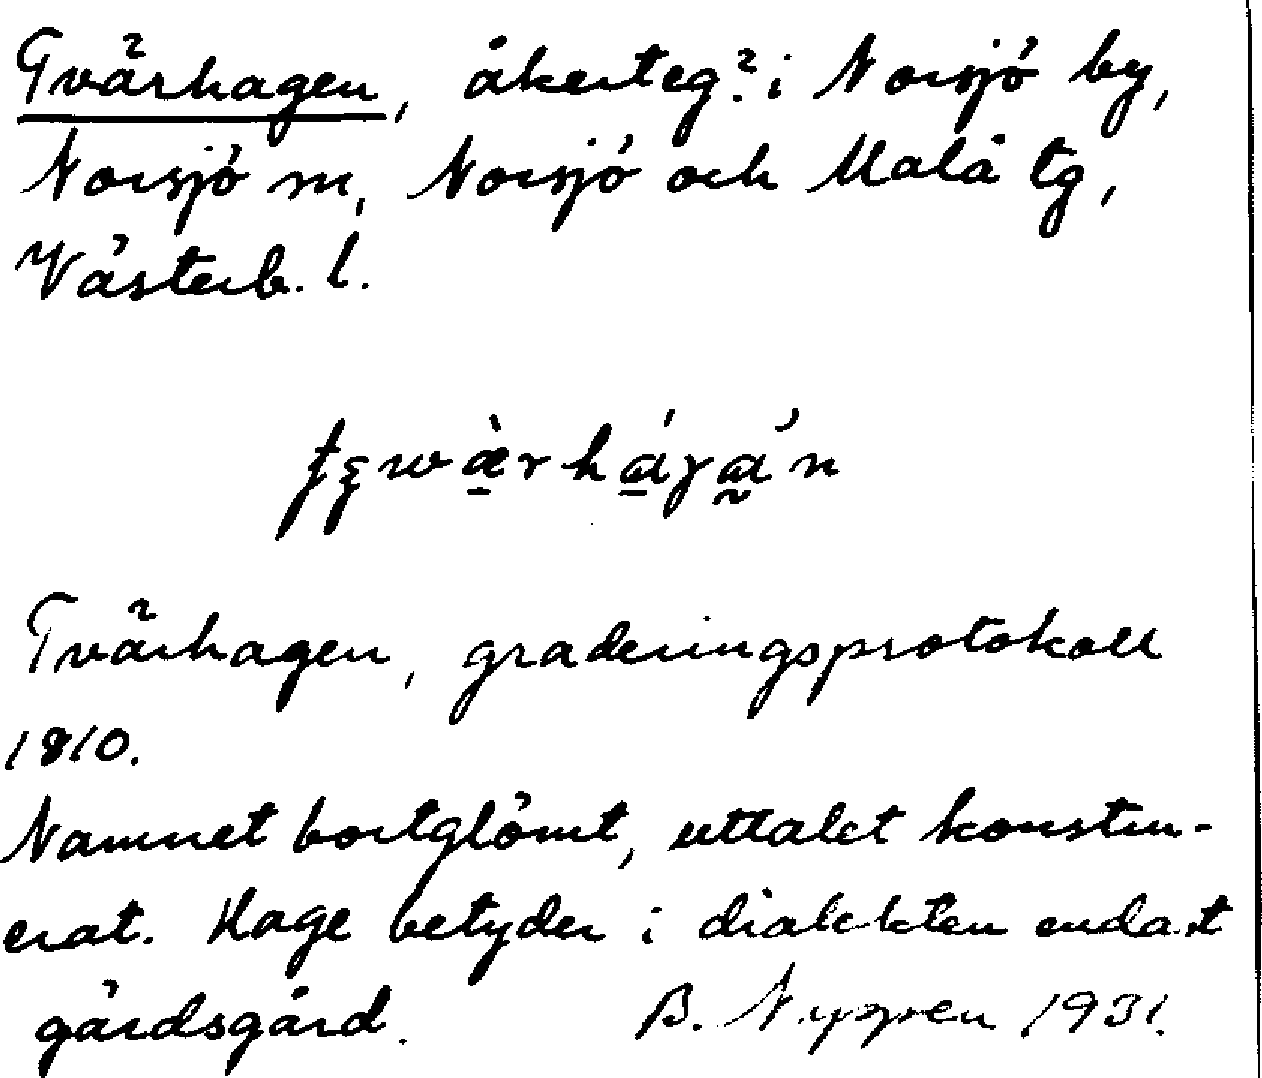 Tvärhagen, åkerteg? i Norsjö by,
Norsjö sn, Norsjö och Malå tg,
Västerb. l.
Tvärhagen, graderingsprotokoll
1810.
Namnet bortglömt, uttalet konstru-
erat. Hage betyder i dialekten endast
gärdsgård. B. Nyppen 1931.